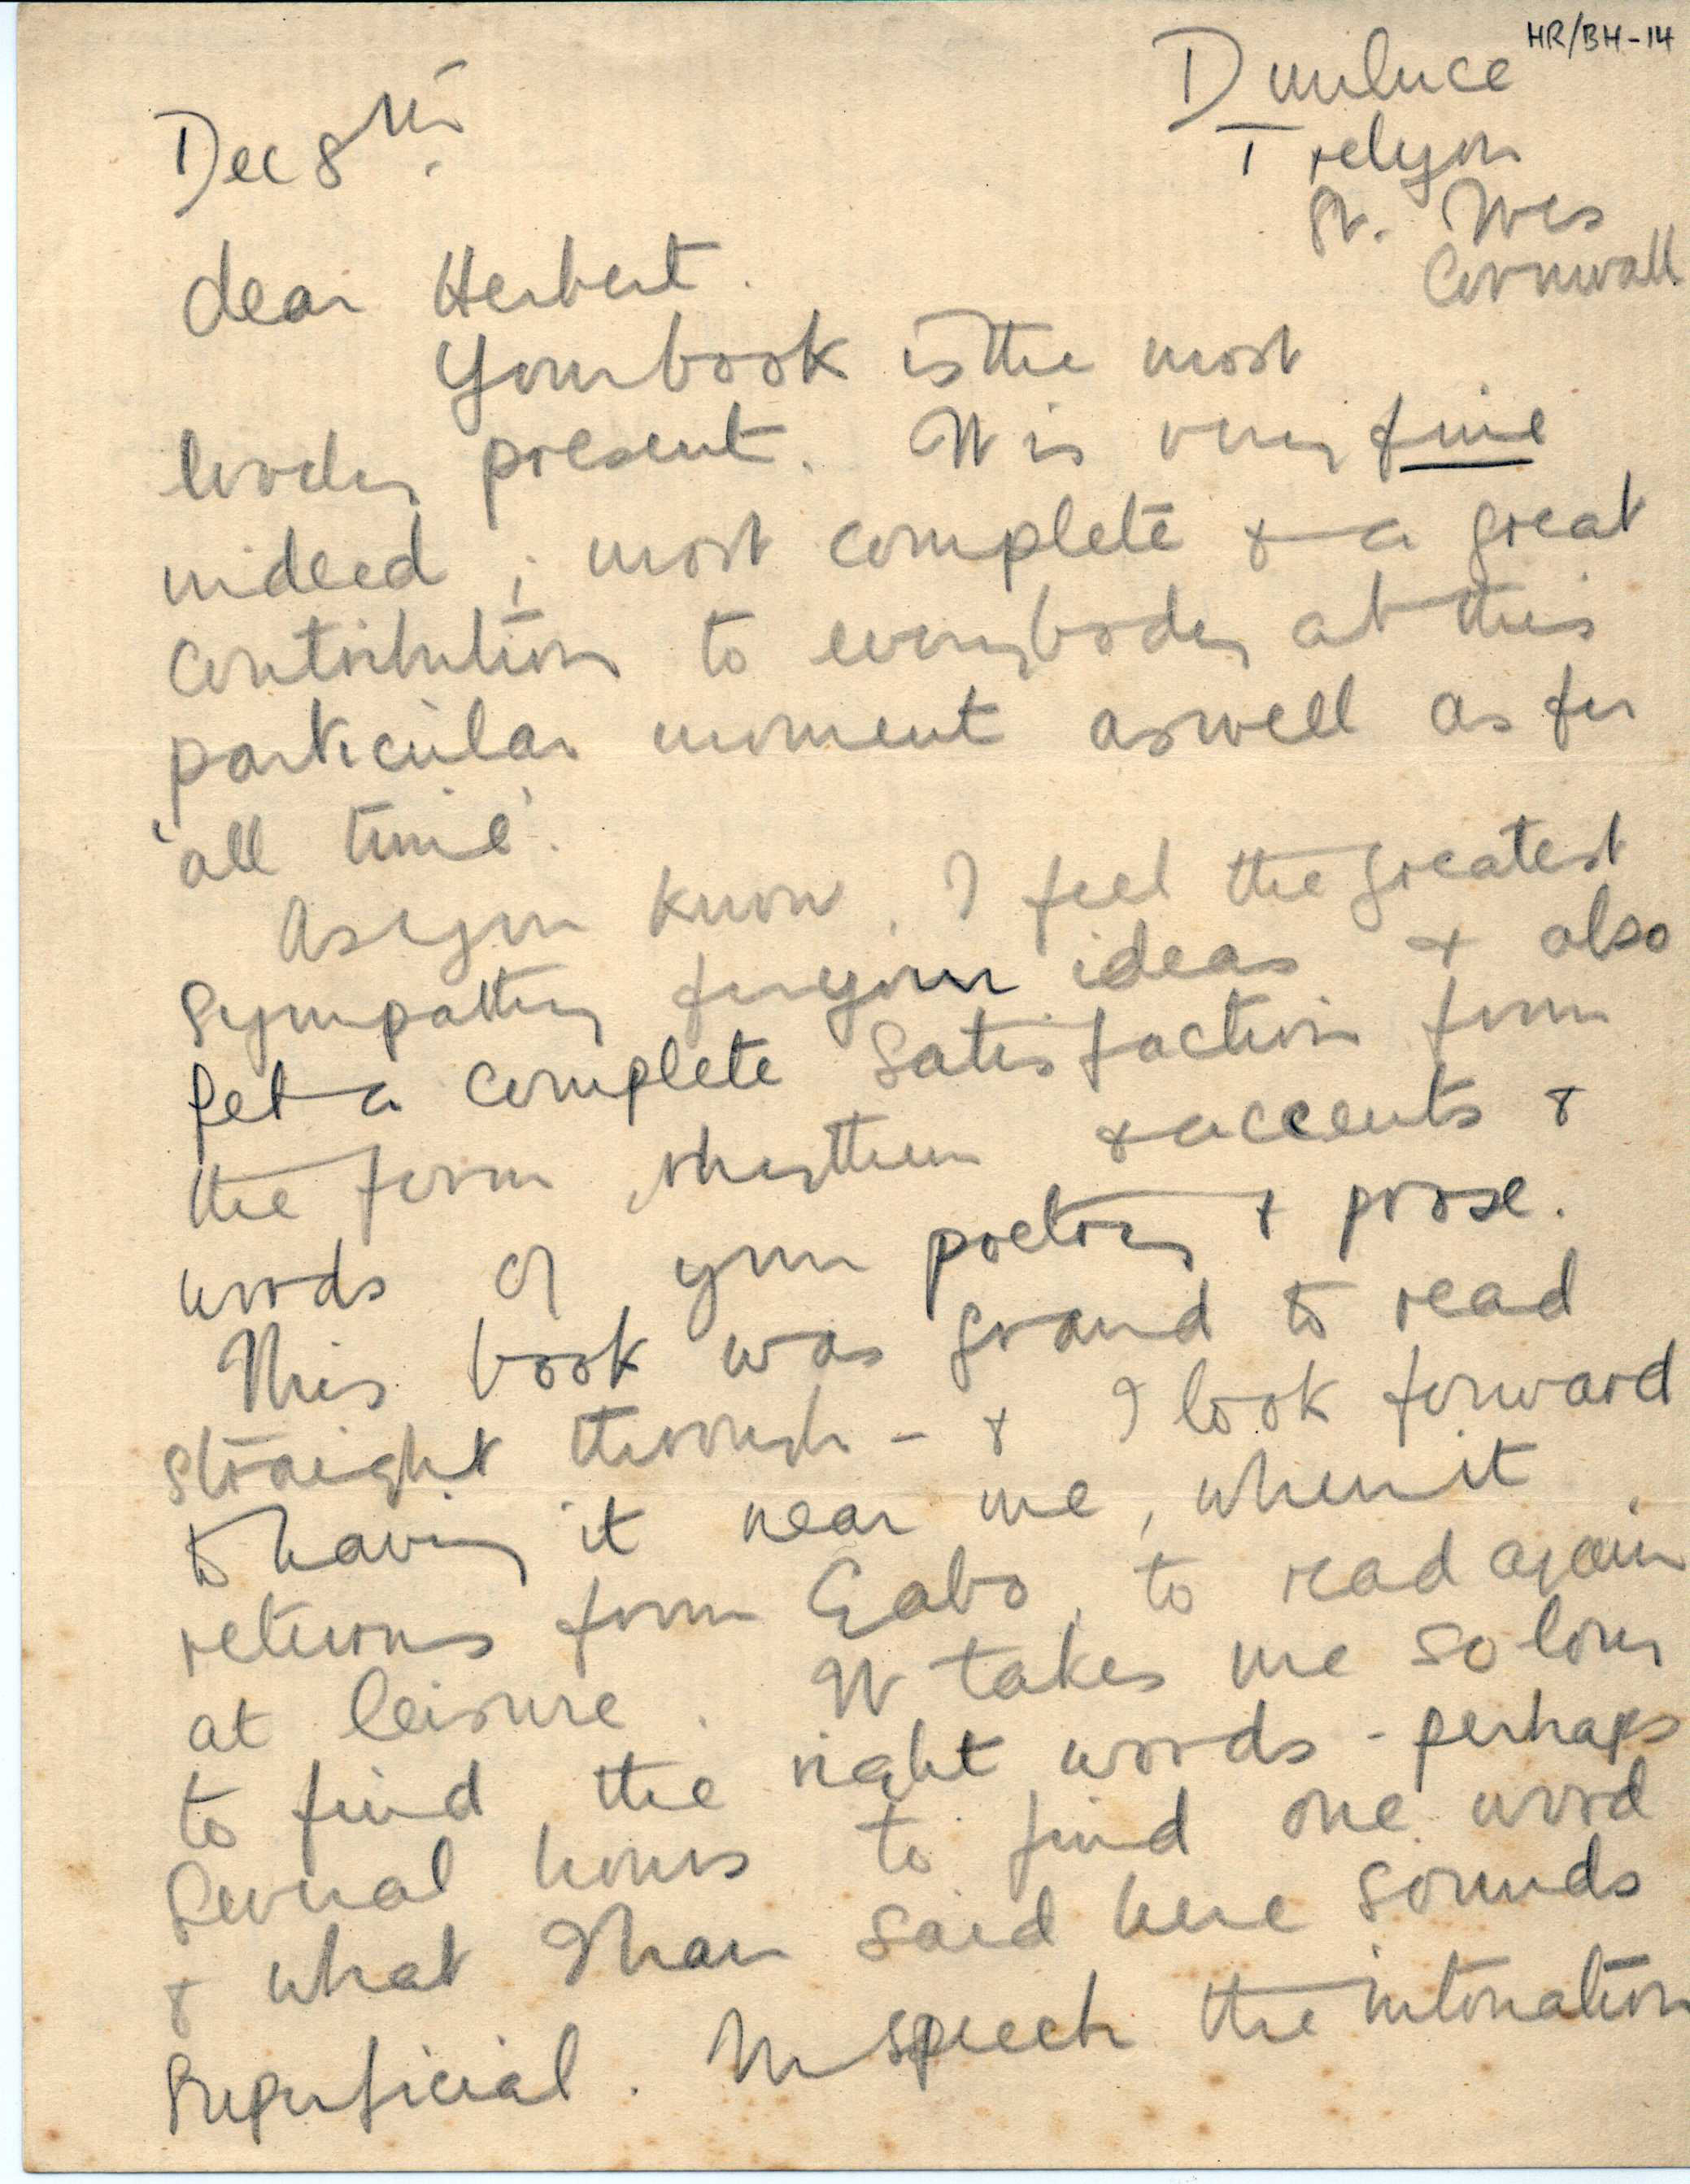 HR/BH-14
Dunluce
Trelyon
St. Ives
Cornwall
Dec 8th.
dear Herbert.
Your book is the most
lovely present. It is very fine
indeed; most complete & a great
contribution to everybody at this
particular moment as well as for
'all time'.
As you know, I feel the greatest
sympathy for your ideas & also
get a complete satisfaction from
the form, rhythm & accents &
words of your poetry & prose.
This book was grand to read
straight through - & I look forward
to having it near me, when it
returns from Gabo, to read again
at leisure. It takes me so long
to find the right words - perhaps
several hours to find one word
& what I have said here sounds
superficial. In speech the intonation